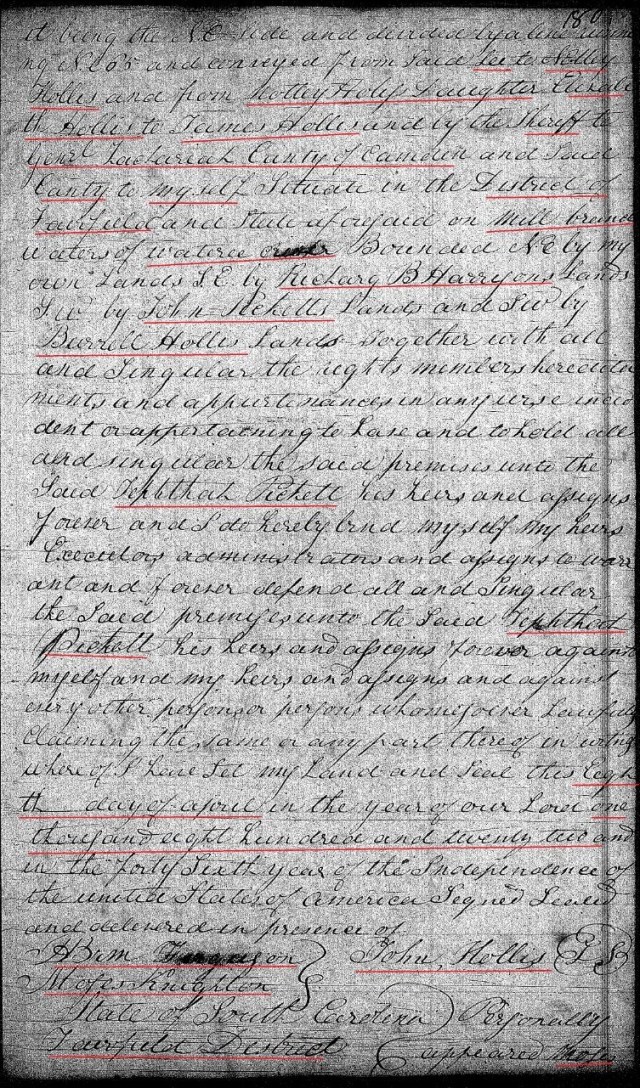 it being the N.E. side and divided by a line
ng N. 65 and conveyed from Said Lee to Nolley
Hollis and from Notley Holiss Daughter Elizabe
th Hollis to James Hollis and by the Sheriff to
Genrl Zachariah Canty of Camden and Said
Canty to myself Situate in the District of
Fairfield and State aforesaid on Mill branch
waters of wateree Bounded N.E by my
own Lands S.E. by Richarg B Harrysons Lands
S.W by John Picketts Lands and S.W by
Burrell Hollis Lands Together with all
and Singular the rights members heredita
ments and appurtinances in any wise inci
dent or appertaining to have and to hold all
and singular the said premises unto the
Said Jephthah Pickett his heirs and assigns
forever and I do hereby bind myself my heirs
Executors administrators and assigns to warr
ant and forever defend all and Singular
the Said premises unto the Said Jephthah
Pickett his heirs and assigns forever against
myself and my heirs and assigns and against
every other person or persons whomesoever Lawfully
claiming the same or any part thereof in witness
whereof I have Set my hand and Seal this Eegh
th day of april in the year of our Lord one
thousand eight hundred and twenty two and
in the forty Sixth year of the Independence of
the united States of america Signed Sealed
and delivered in presence of
Abm Ferguson John Hollis L S
Moses Knighton
State of South Carolina Personally
Fairfield District appeared Moses